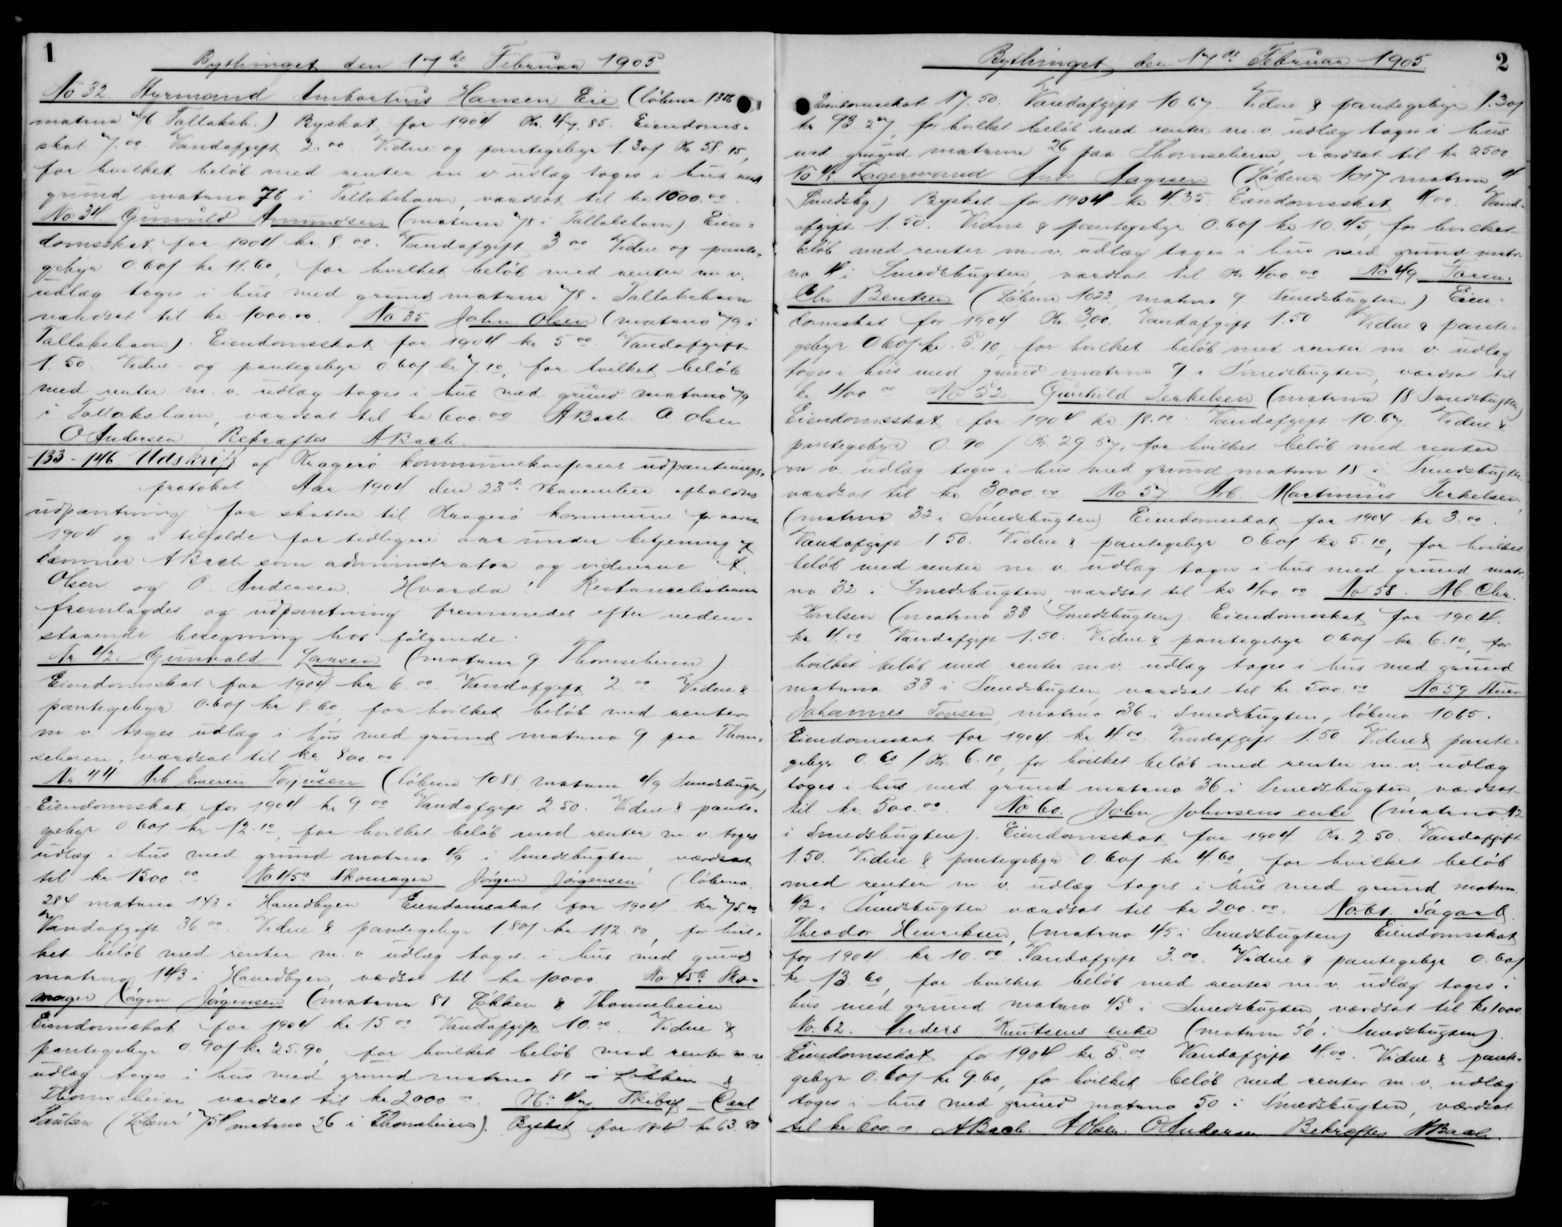 1
Bythinget den 17de Februar 1905
No 32 Styrmand Imbartus Hansen Eie (löbeno 1358
matrno 76 Tallaksh.) Byskat for 1904 Kr. 47.85. Eiendoms-
skat 7.00. Vandafgift 2.00. Vidne og pantegebyr 1.30/ Kr 58.15,
for hvilket beløb med renter m v udlæg toges i hus med
grund matrno 76 i Tallakshavn, værdsat til kr 1000.00
No 34 Gunuld Amundsen (matrno 78 i Tallakshavn) Eien-
domsskat for 1904 kr. 8.00. Vandafgift 3.00 Vidne og pante-
gebyr 0.60/ kr 11.60, for hvilket beløb med renter m v.
udlæg toges i hus med grund matrno 78 i Tallakshavn
værdsat til kr 1000.00. No 35 John Olsen (matrno 79 i
Tallakshavn). Eiendomsskat for 1904 kr 5.00 Vandafgift
1.50. Vidne og pantegebyr 0.60/ kr 7.10, for hvilket beløb
med renter m. v. udlæg toges i hus med grund matrno 79
i Tallakshavn, værdsat til kr 600.00 ABach. A Olsen
O Andersen Bekræftes ABach.
133-146 Udskrift af Kragerö kommunekasserers udpantnings-
protokol Aar 1904 den 23de November afholdtes
udpantning for skatter til Kragerö kommune for aaret
1904 og i tilfælde for tidligere aar under betjening af
ABach som administrator og vidnerne A.
Olsen og O. Andersen. Hvorda! Restancelisterne
fremlagdes og udpantning fremmedes efter neden-
staaende beregning hos følgende:
Nr 42. Gunvald Larsen (matrno 9 Thomesheien)
Eiendomsskat for 1904 kr 6.00 Vandafgift 2.00 Vidne &
pantegebyr 0.60/ kr 8.60, for hvilket beløb med renter
m. v. toges udlæg i hus med grund matrno 9 paa Thom-
seheien, værdsat til kr 800.00
Nr 44 Arb Torjusen (löbeno 1088 matrno 49 Smedsbugten)
Eiendomsskat for 1904 kr 9.00 Vandafgift 2.50. Vidne & pante-
gebyr 0.60/ kr. 12.10, for hvilket beløb med renter m. v. toges
udlæg i hus med grund matrno 49 i Smedsbugten værdsat
til kr 1500.00 No 45a Skomager Jörgen Jörgensen (löbeno
284 matrno 143 i Havedbyen Eiendomsskat for 1904 kr 75.00
Vandafgift 36.00. Vidne & pantegebyr 1.80/ kr 112.80, for hvil-
ket beløb med renter m. v. udlæg toges i hus med grund
matrno 143 i Havedbyen, værdsat til kr 10000 No 45b Sko-
mager Jörgen Jörgensen (matrno 81 Løkken & Thomseheien
Eiendomsskat for 1904 kr 15.00 Vandafgift 10.00. Vidne &
pantegebyr 0.90/ kr 25.90, for hvilket beløb med renter m v
udlæg toges i hus med grund matrno 81 i Løkken &
Thomseheien værdsat til kr 2000.00. No 47 Skibsf. Carl
Paulsen (Löbeno 754 matrno 26 i Thomseheien). Byskat for 1904 kr 63.80
2
Bythinget den 17de Februar 1905
Eiendomsskat 17.50. Vandafgift 10.67. Vidne & pantegebyr 1.30/
kr 93.27, for hvilket beløb med renter m. v. udlæg toges i hus
med grund matrno 26 paa Thomseheien, værdsat til kr 2500
No 48 Lagermand Aagesen (Löbeno 1017 matrno 4
Smedsbg.) Byskat for 1904 kr 4.35 Eiendomsskat 4.00. Vand-
afgift 1.50. Vidne & pantegebyr 0.60/ kr 10.45, for hvilket
beløb med renter m. v. udlæg toges i hus med grund matr-
no 4 i Smedsbugten værdsat til Kr 400.00 No 49
Chr. Bentsen (Löbeno 1022 matrno 9 Smedsbugten) Eien-
domsskat for 1904 Kr. 3.00. Vandafgift 1.50 Vidne & pante-
gebyr 0.60/ kr. 5.10, for hvilket beløb med renter m. v. udlæg
toges i hus med grund matrno 9 i Smedsbugten, værdsat til
kr 400.00 No 52 Gunhild Terkelsen (matrno 18 Smedsbugten)
Eiendomsskat for 1904 kr 18.00 Vandafgift 10.67 Vidne &
pantegebyr 0.90/ Kr. 29.57, for hvilket beløb med renter
m. v. udlæg toges i hus med grund matrno 18 i Smedsbugten
værdsat til kr 3000.00 No 57 Arb Martinius Terkelsen
(matrno 32 i Smedsbugten) Eiendomsskat for 1904 kr 3.00.
Vandafgift 1.50. Vidne & pantegebyr 0.60/ kr 5.10, for hvilket
beløb med renter m. v. udlæg toges i hus med grund matr-
no 32 i Smedsbugten, værdsat til kr 400.00 No 58. Chr.
Karlsen (matrno 33 Smedsbugten). Eiendomsskat for 1904.
kr 4.00 Vandafgift 1.50. Vidne & pantegebyr 0.60/ kr 6.10, for
hvilket beløb med renter m. v. udlæg toges i hus med grund
matrno 33 i Smedsbugten, værdsat til kr. 500.00 No 59
Johannes Tonsen, matrno 36 i Smedsbugten, löbeno 1065.
Eiendomsskat for 1904 kr 4.00. Vandafgift 1.50 Vidne & pante-
gebyr 0.60/ Kr. 6.10, for hvilket beløb med renter m. v. udlæg
toges i hus med grund matrno 36 i Smedsbugten værdsat
til kr. 500.00 No 60. John Johnsens enke (matrno 42
i Smedsbugten). Eiendomsskat for 1904 Kr. 2.50. Vandafgift
1.50. Vidne & pantegebyr 0.60/ kr 4.60, for hvilket beløb
med renter m. v. udlæg toges i hus med grund matrno
42 i Smedsbugten værdsat til kr 200.00. No 61 Sagarb.
Theodor Henriksen, (matrno 45 i Smedsbugten) Eiendomsskat
for 1904 kr 10.00. Vandafgift 3.00. Vidne & pantegebyr 0.60/
kr 13.60, for hvilket beløb med renter m. v. udlæg toges i
hus med grund matrno 45 i Smedsbugten, værdsat til kr 1000
No. 62. Anders Knutsens enke (matrno 50 i Smedsbugten)
Eiendomsskat for 1904 kr 5.00 Vandafgift 4.00. Vidne & pante-
gebyr 0.60/ kr 9.60, for hvilket beløb med renter m. v. udlæg
toges i hus med grund matrno 50 i Smedsbugten, værdsat
til kr 600.00 ABach. A Olsen. O Andersen Bekræftes ABach.